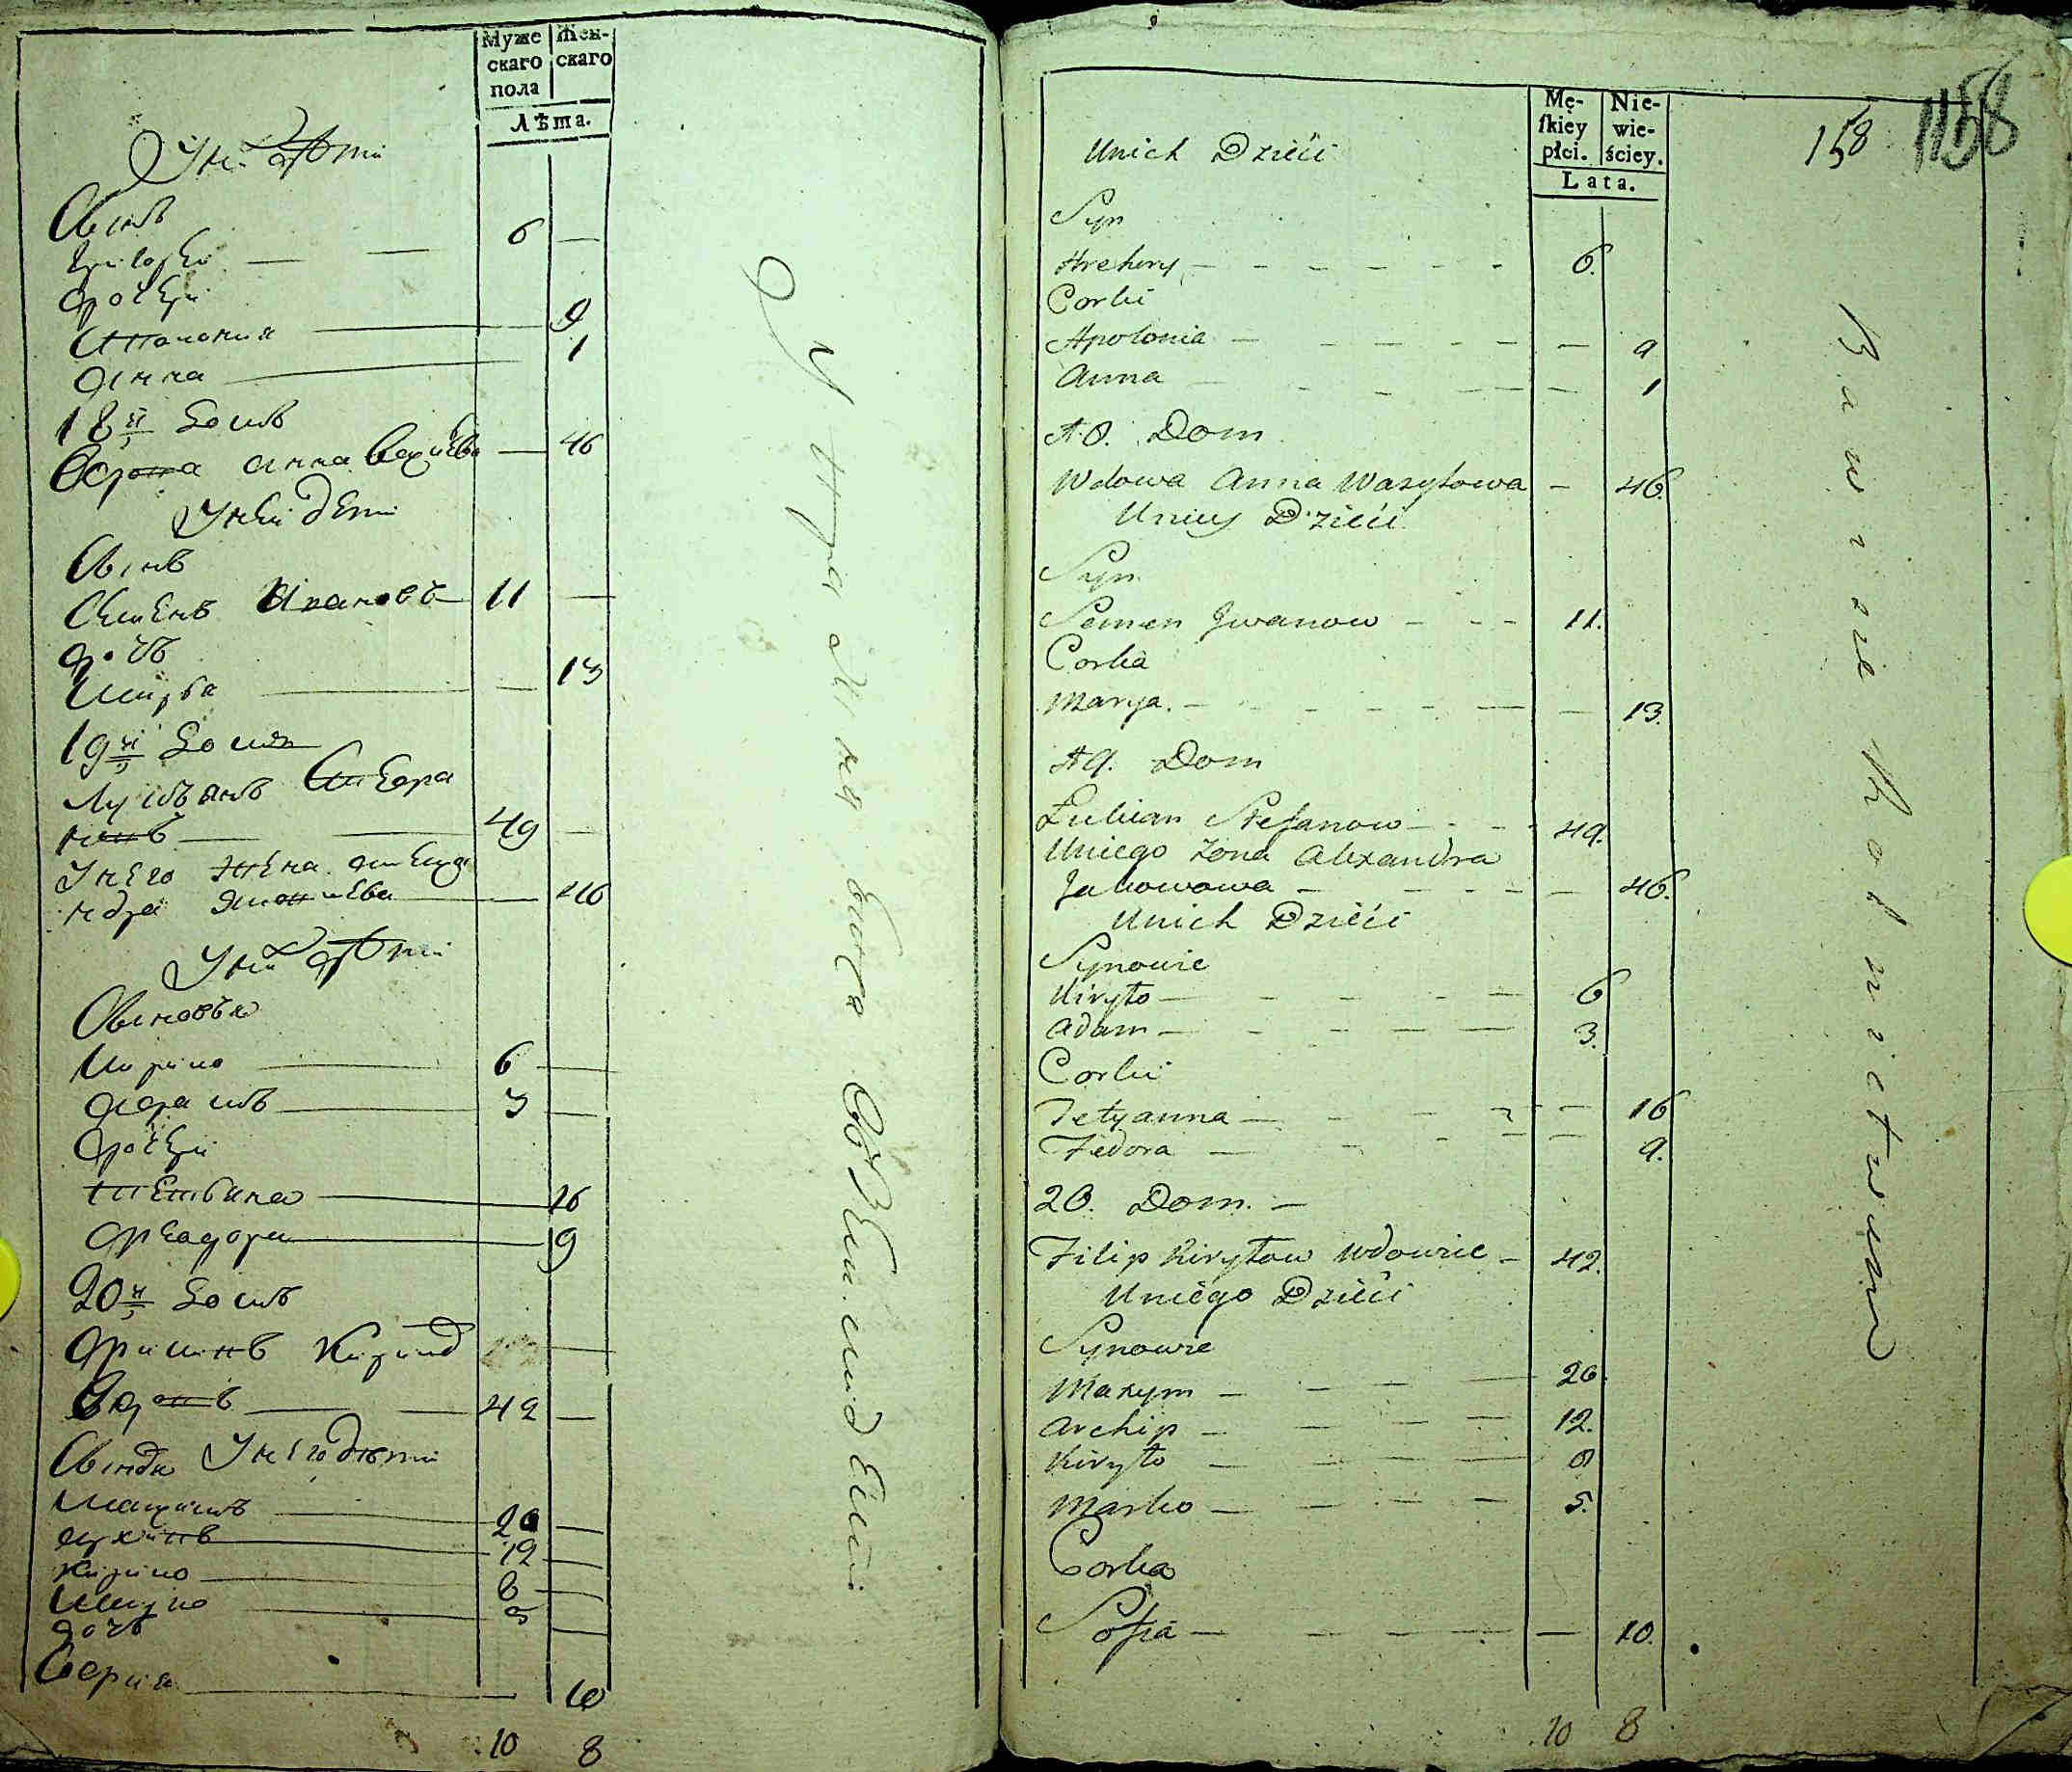 Муже
скаго
пола
Жен-
скаго
Лѣта.
Сынъ
6
дочери
Апполония 9
Анна 1
18й домъ
Вдова Анна 46
Уней дети
Сынъ
Семенъ Ивановъ 11
дочь
Марья 13
19й домъ
Лукьянъ Стефа
новъ 49
Унего жена Алекса
ндра 46
Уних дѣти
Сыновья
Кирило 6
Адамъ 3
дочери
Тетьяна 16
Феадора 9
20й домъ
Филипъ Кирилов
Вдовъ 42
Унего дети
Максимъ 20
Архипъ 12
Кирило 8
Марко 5
дочь
Софія 10
10 8
158
1158
Mę-
ſkiey
płci.
Nie-
wie-
ściey.
Lata.
Unich Dzieci
Syn
Hrehory 6.
Corki
Apolonia 9
Anna 1
18. Dom
Wdowa Anna Wasylowa 46.
Uniey Dzieci
Syn
Semen Jwanow 11.
Corka
Marya. 13.
19. Dom
Łukian Stefanow 49.
Uniego Zona Alexandra
Jakowowa 46.
Unich Dzieci
Synowie
Kiryło 6
Adam 3.
Corki
Tetyanna 16
Fedora 9.
20. Dom.
Filip Kiryłow Wdowiec 42.
Uniego Dzieci
Synowie
Maxym 20.
Archip 12.
Kiryło 8
Marko 5.
Corka
Sofia 10.
10 8